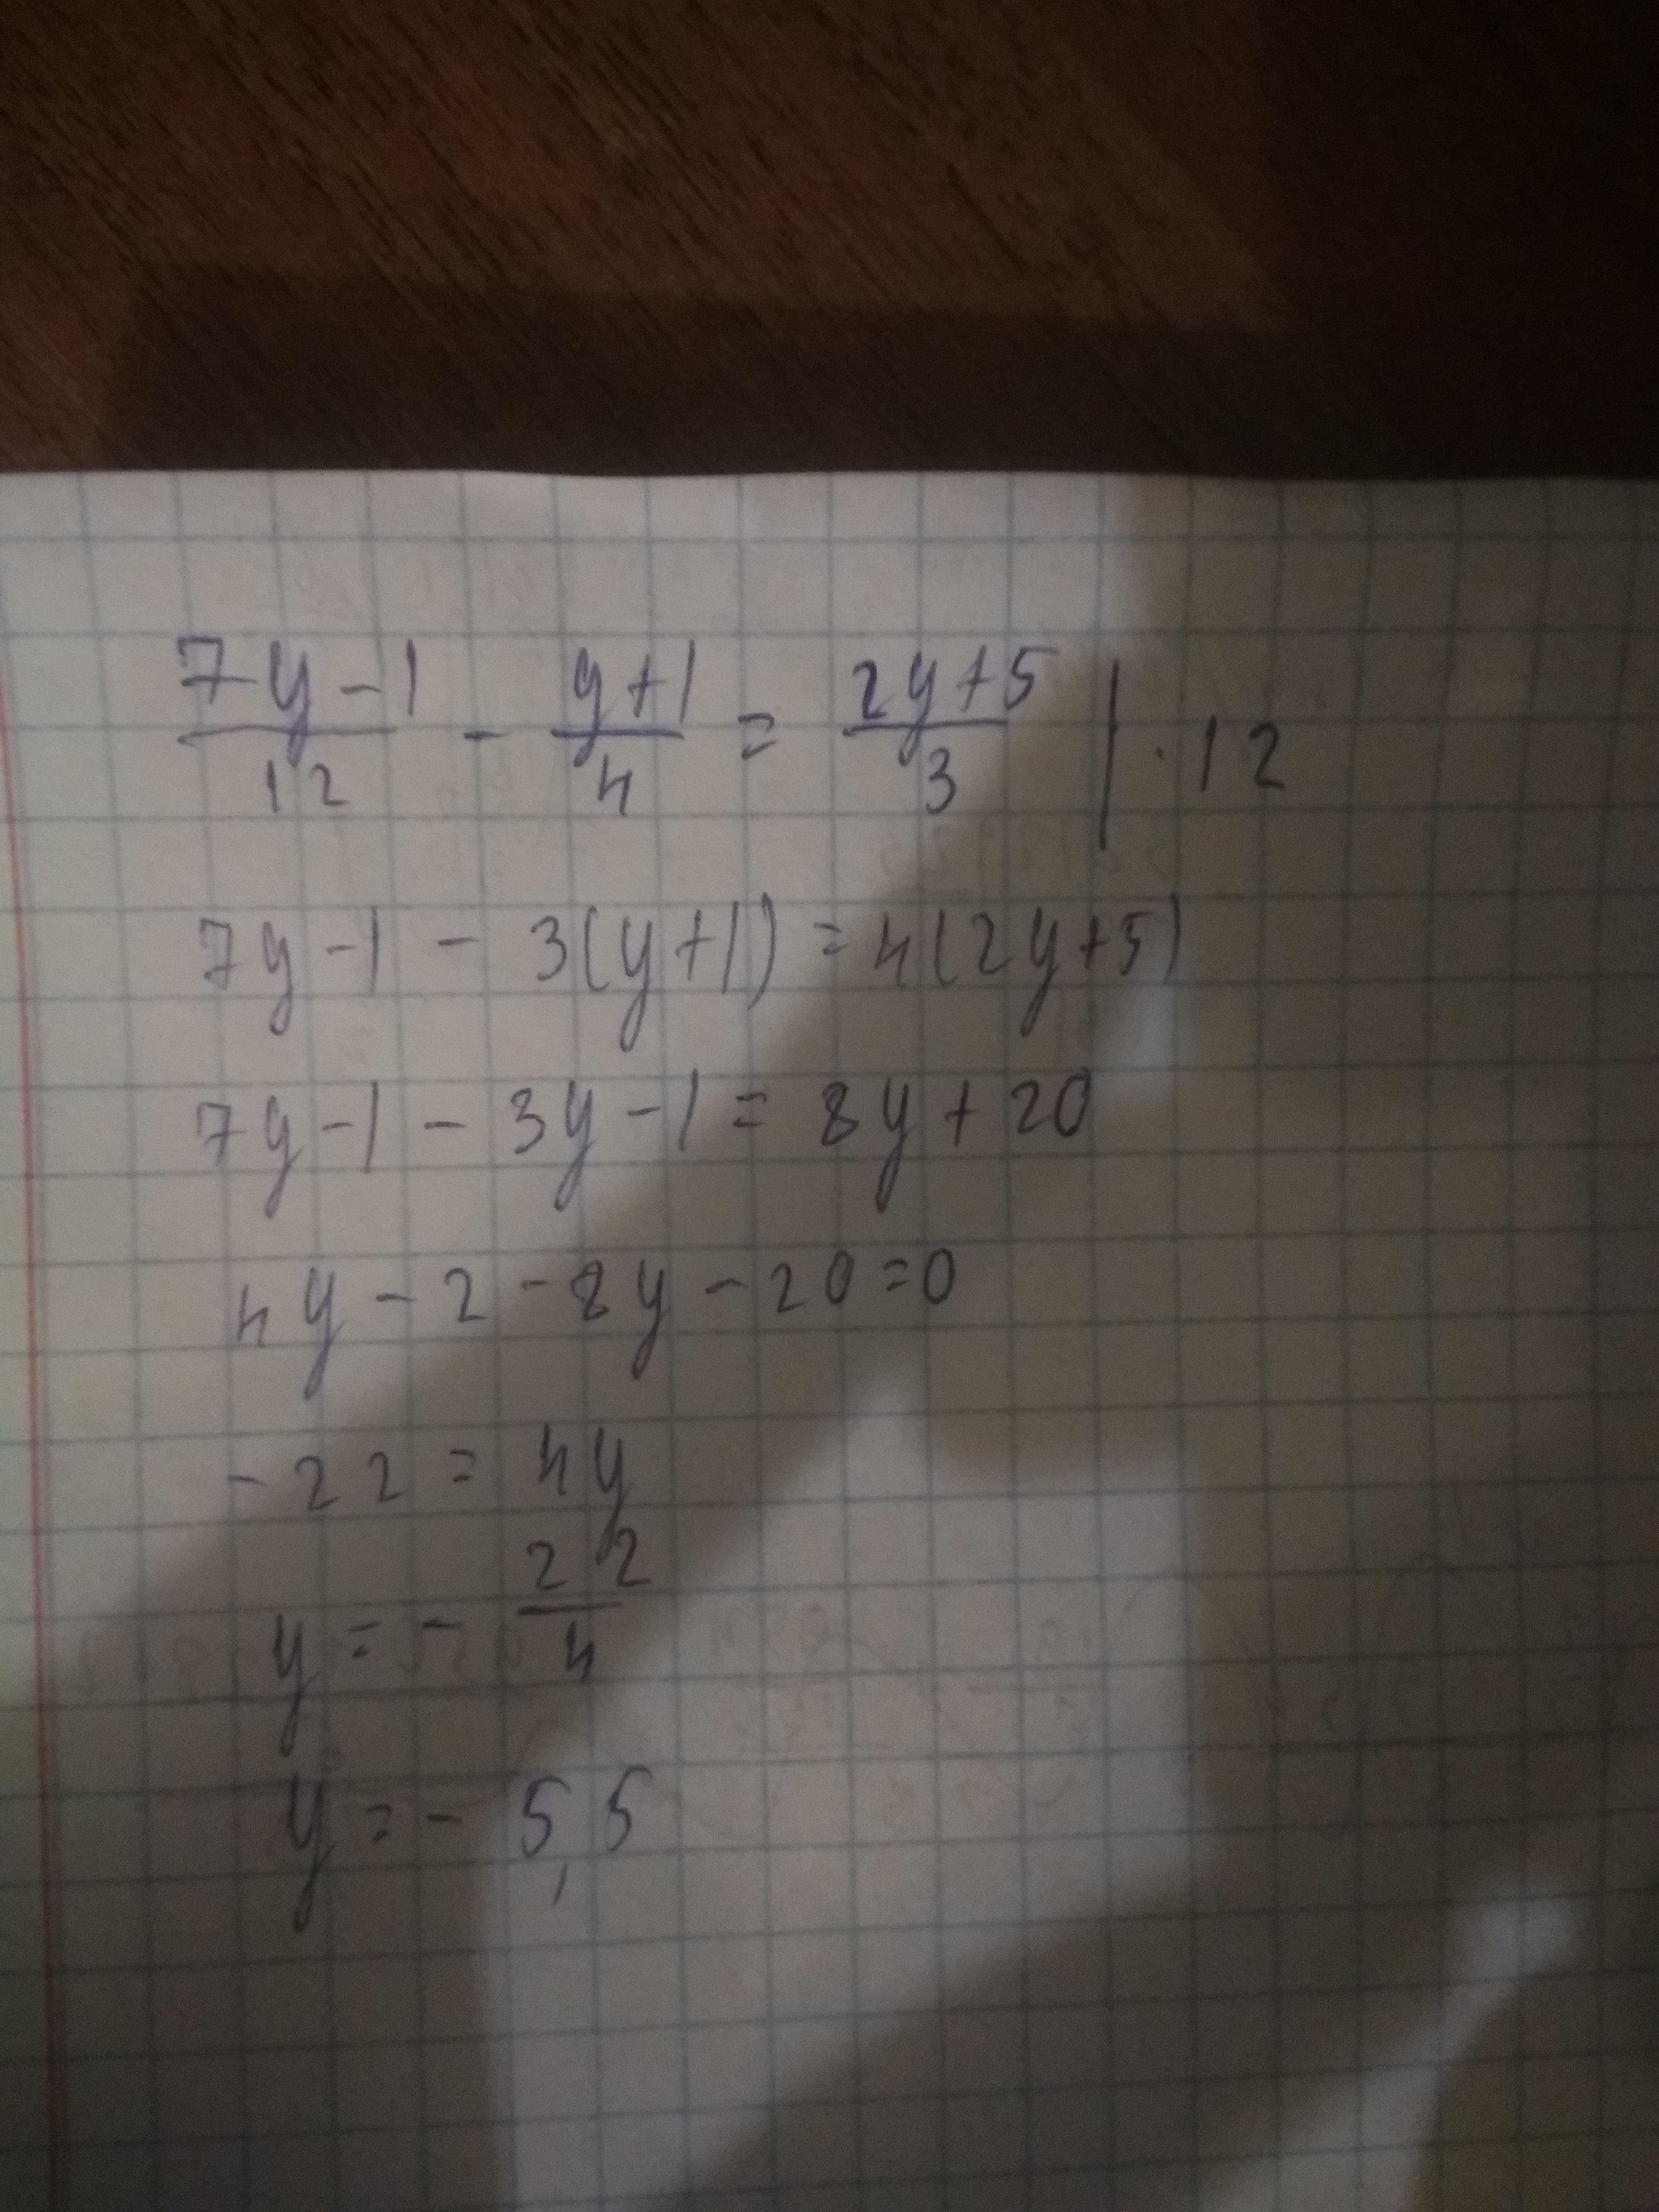 (7y-1)/12 - (y+1)/4 = (2y+5)/3 | · 12
7y-1 - 3(y+1) = 4(2y+5)
7y-1 - 3y-1 = 8y+20
4y-2-8y-20=0
-22 = 4y
y = - 22/4
y = - 5,5